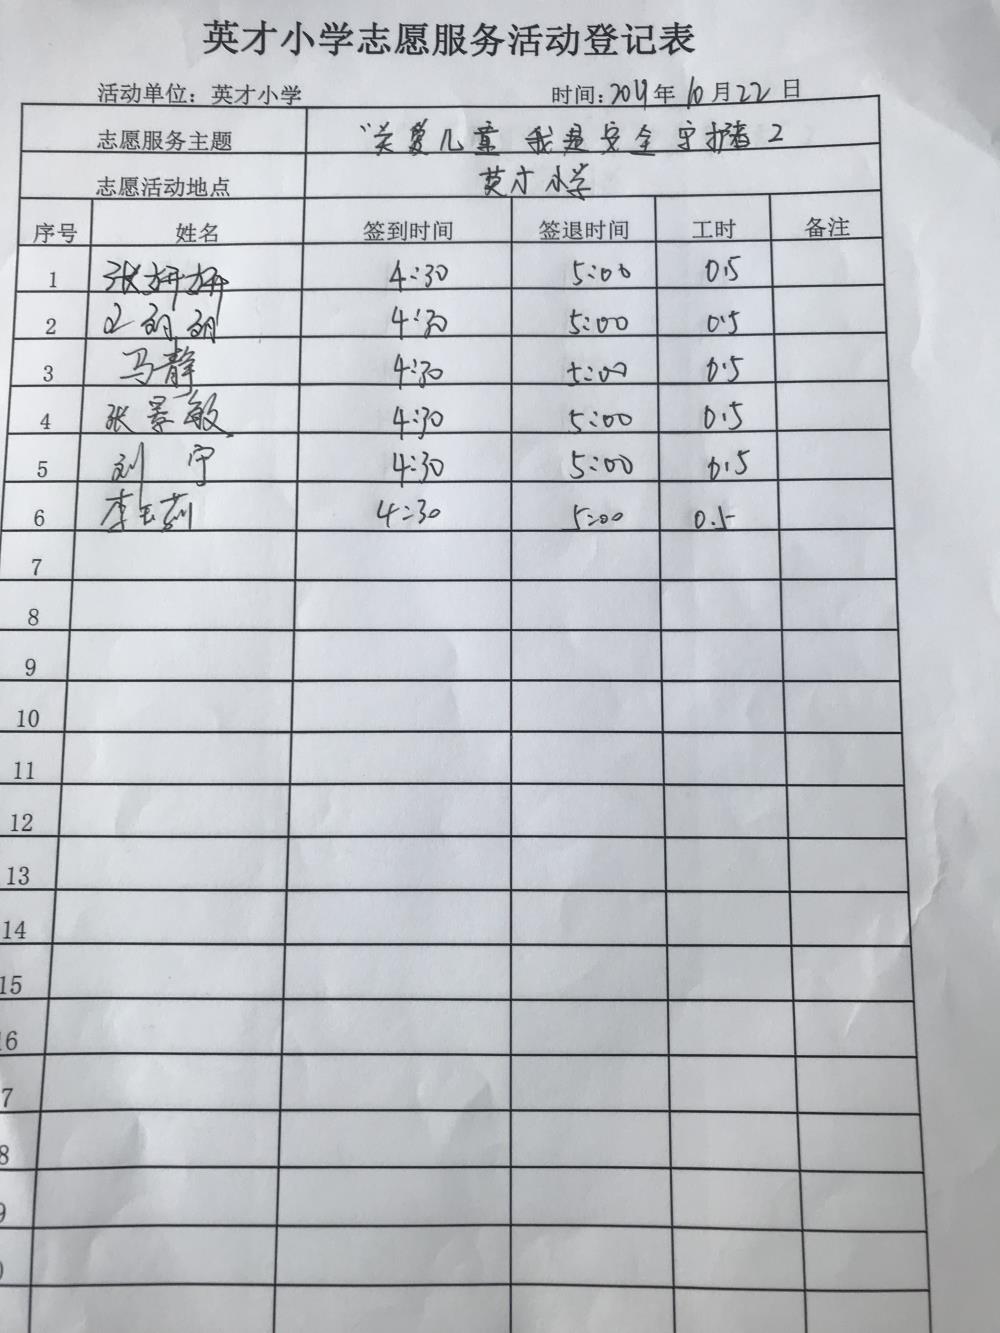 英才小学志愿服务活动登记表
活动单位：英才小学 时间：2019年10月22日
志愿服务主题 “关爱儿童 我是安全守护者2
志愿活动地点 英才小学
序号 姓名 签到时间 签退时间 工时 备注
1 张妍妍 4:30 5:00 0.5
2 4:30 5:00 0.5
3 马静 4:30 5:00 0.5
4 张景敏 4:30 5:00 0.5
5 刘宁 4:30 5:00 0.5
6 李玉莉 4:30 5:00 0.5
7
8
9
10
11
12
13
14
15
16
7
8
9